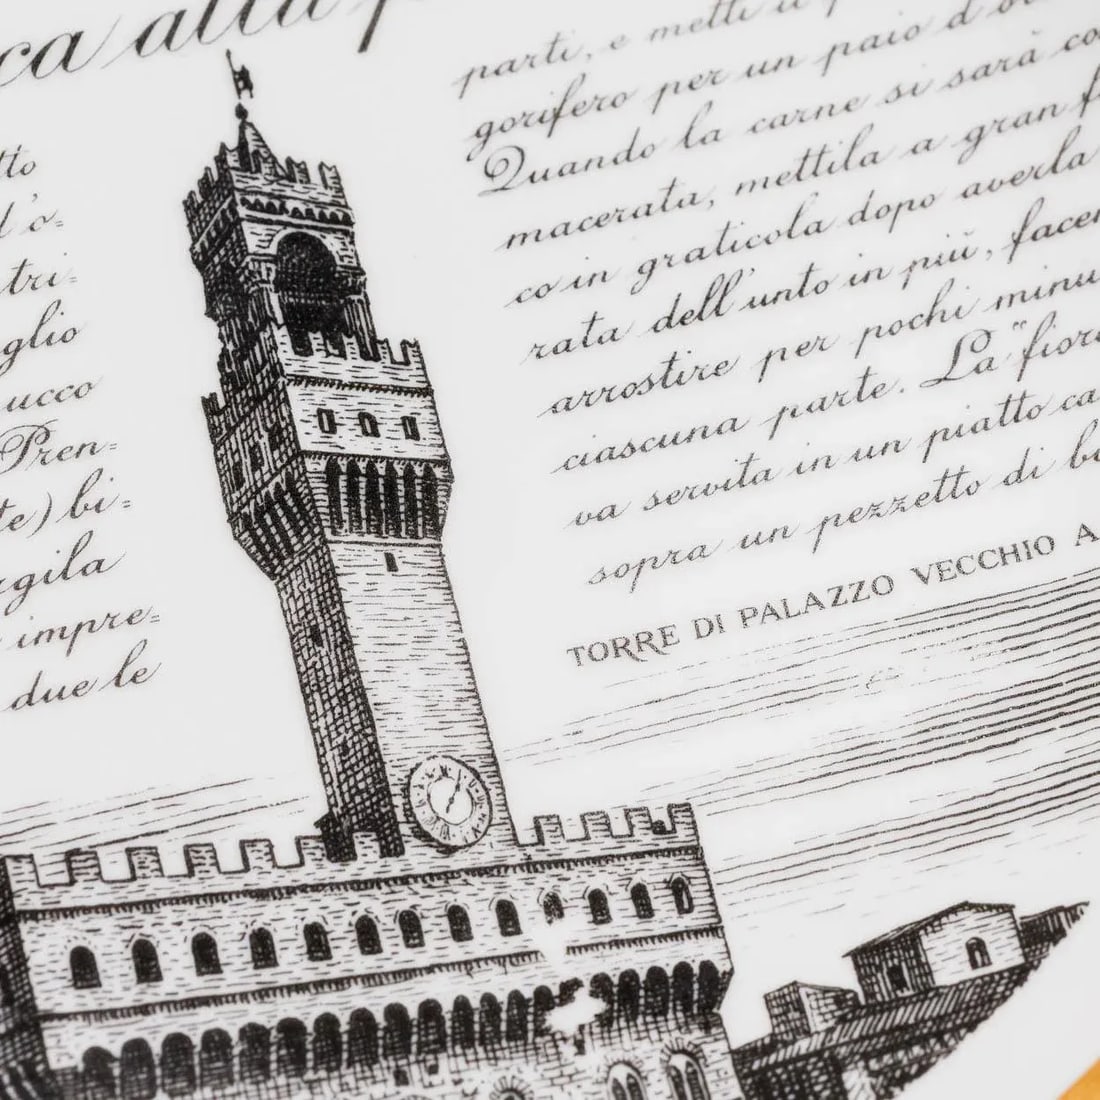 ca alla
tto
d'o-
tri-
glio
ucco
Pren-
te) bi-
rgila
impre-
due le
parti, e metti
gorifero per un paio d'
Quando la carne si sarà
macerata, mettila a gran
co in graticola dopo averla
rata dell'unto in più, facen
arrostire per pochi minu
ciascuna parte. La "fior
va servita in un piatto ca
sopra un pezzetto di
TORRE DI PALAZZO VECCHIO A